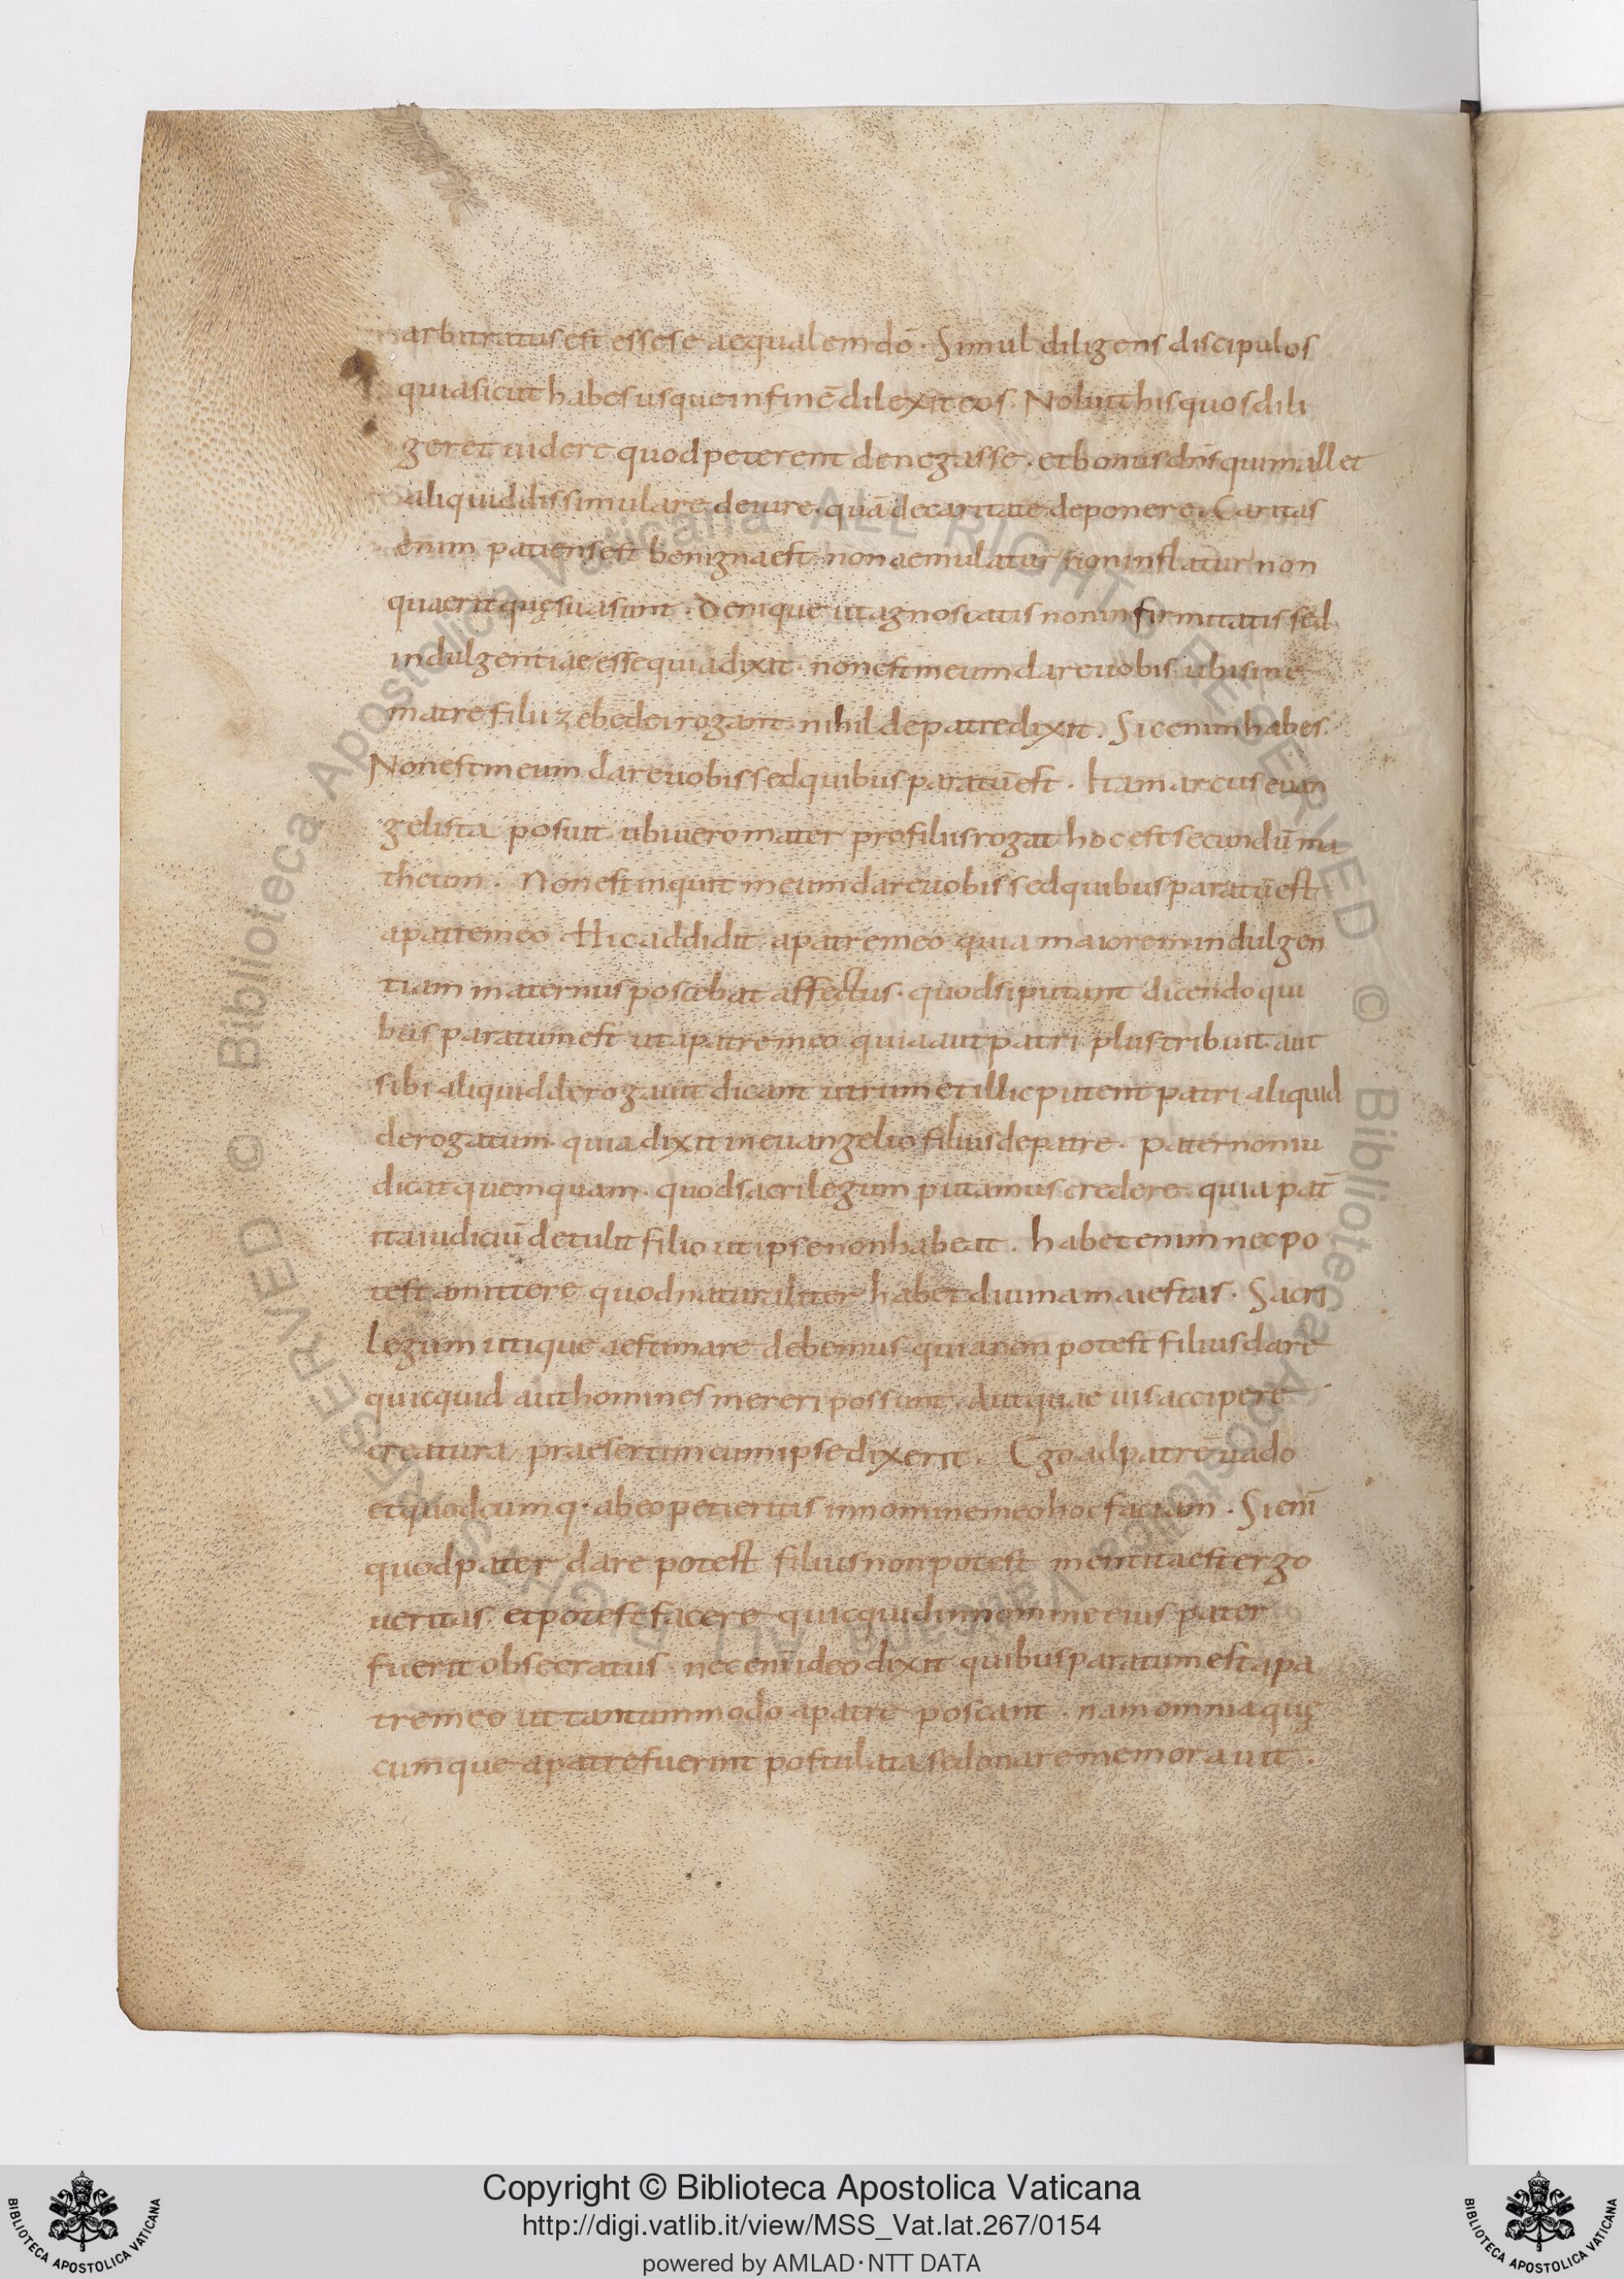 arbitratus est esse se aequalem dō · Simul diligens discipulos
quia sicut habes usque in finē dilexit eos · Noluit his quos dili
geret uidere quod peterent denegasse · et bonus dn̄s qui mallet
aliquid dissimulare de iure · quā de caritate deponere · Caritas
enim patiens est benigna est · non aemulatur non inflatur non
quaerit quę sua sunt · denique ut agnoscatis non infirmitatis sed
indulgentiae esse quia dixit · non est meum dare uobis ubi sine
matre filii zebedei rogant · nihil de patre dixit · Sic enim habes ·
Non est meum dare uobis sed quibus paratū est · Ita marcus euan
gelista posuit ubi uero mater pro filiis rogat hoc est secundū mat
theum · Non est inquit meum dare uobis sed quibus paratū est
a patre meo · Hic addidit a patre meo quia maiorem indulgen
tiam maternus poscebat affectus · quod si putant dicendo qui
bus paratum est ut a patre meo quia aut patri plus tribuit aut
sibi aliquid derogauit dicant utrum et illic putent patri aliquid
derogatum · quia dixit in euangelio filius de patre · pater non iu
dicat quemquam · quod sacrilegum putamus credere · quia pat̄
ita iudiciū detulit filio ut ipse non habeat · habet enim nec po
test amittere quod naturaliter habet diuina maiestas · Sacri
legum utique aestimare debemus quia non potest filius dare
quicquid aut homines mereri possunt · aut quae uis accipere
creatura · praesertim cum ipse dixerit · Ego ad patrē uado
et quodcumq· ab eo petieritis in nomine meo hoc faciam · Si enī
quod pater dare potest filius non potest mentita est ergo
ueritas · et potest facere quicquid in nomine eius pater
fuerit obsecratus · nec enī ideo dixit quibus paratum est a pa
tre meo ut tantummodo a patre poscant · nam omnia quę
cumque a patre fuerint postulata se donare memorauit ·
Copyright © Biblioteca Apostolica Vaticana
http://digi.vatlib.it/view/MSS_Vat.lat.267/0154
powered by AMLAD·NTT DATA
BIBLIOTECA APOSTOLICA VATICANA
BIBLIOTECA APOSTOLICA VATICANA
© Biblioteca Apostolica Vaticana ALL RIGHTS RESERVED
© Biblioteca Apostolica Vaticana ALL RIGHTS RESERVED